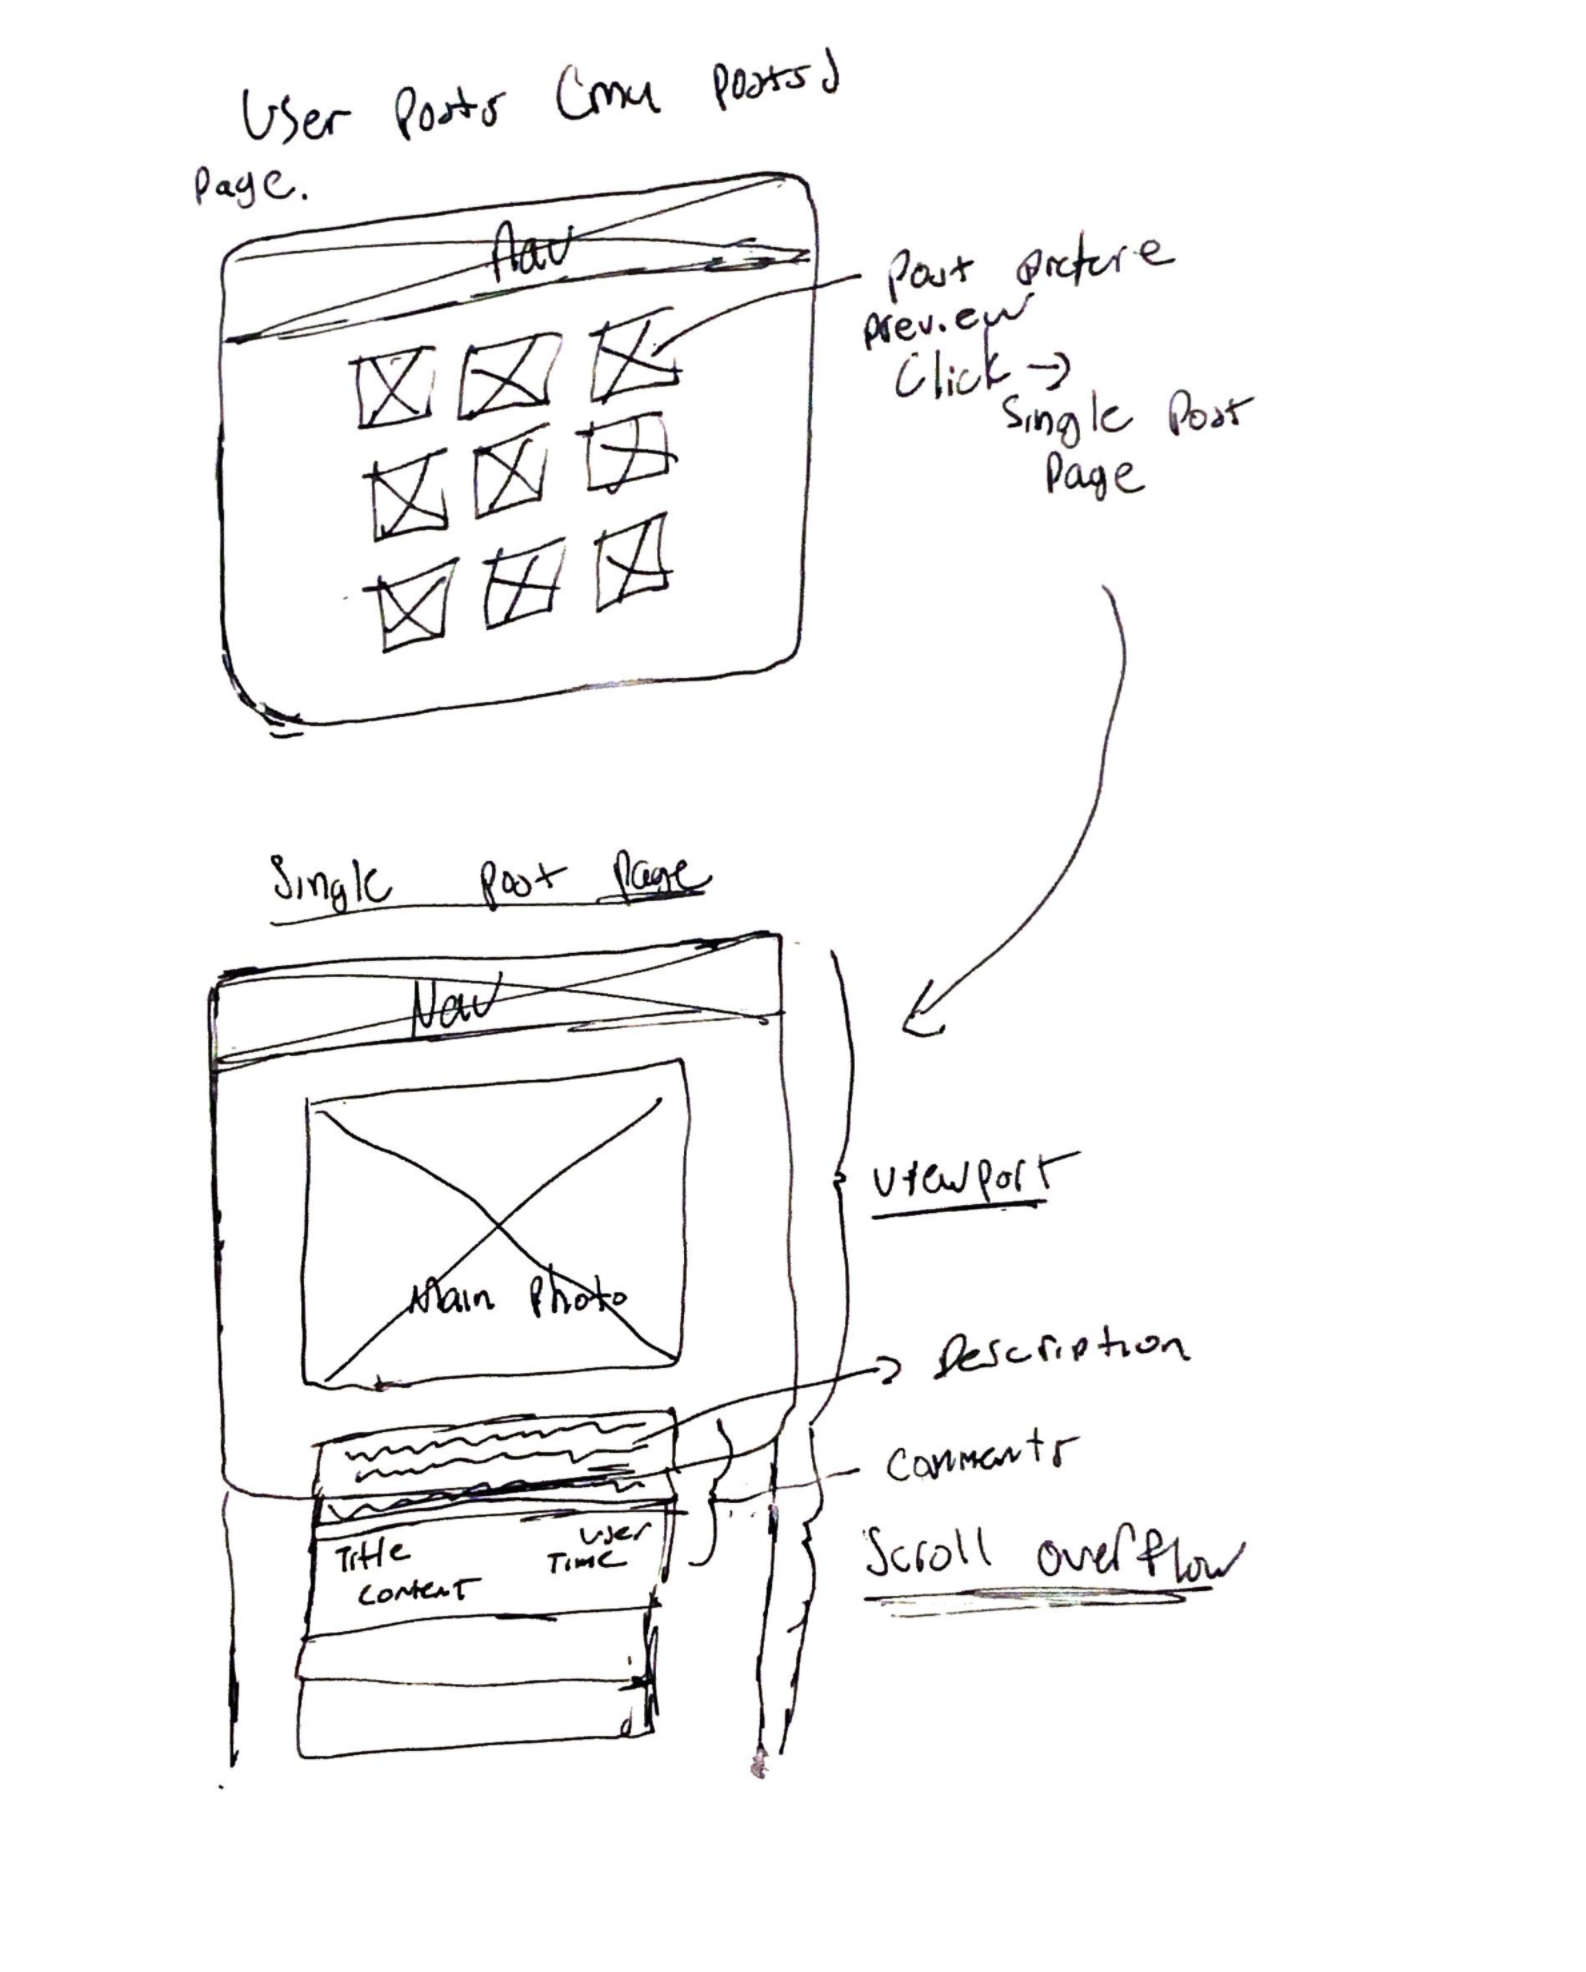 User Posts (my Posts)
Page.
Nav
Post picture
preview
Click →
Single Post
Page
Single Post Page
Nav
Viewport
Main Photo
Description
Comments
User
Title Time
Content
Scroll overflow